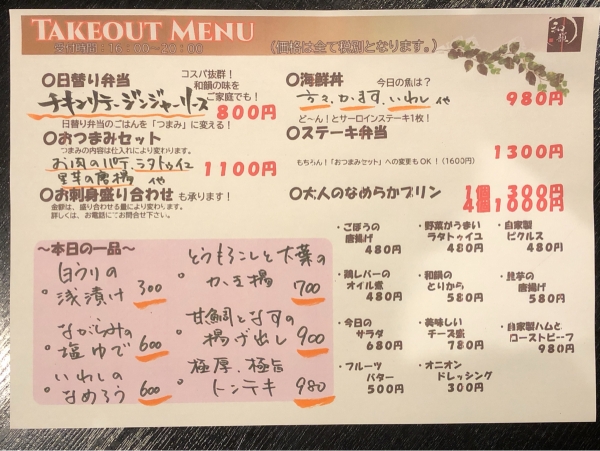 TAKEOUT MENU
受け時間：16：00～20：00
（価格は全て税別となります。）
○日替り弁当
コスパ抜群！
和韻の味を
ご家庭でも！
チキンソテージンジャーソース
800円
日替り弁当のごはんを「つまみ」に変える！
○おつまみセット
つまみの内容は仕入れにより変わります。
お肉のパテ、ラタトゥイユ
里芋の唐揚 他
1100円
○お刺身盛り合わせ も承ります！
金額は、盛り合わせる量により変わります。
詳しくは、お電話にてお問合せ下さい。
○海鮮丼
今日の魚は？
980円
ど～ん！とサーロインステーキ1枚！
○ステーキ弁当
1300円
もちろん！「おつまみセット」への変更もOK！（1600円）
○大人のなめらかプリン
1個 300円
4個1000円
～本日の一品～
白うりの
浅漬け 300
ながらみの
塩ゆで 600
いわしの
なめろう 600
とうもろこしと大葉の
かき揚 700
甘鯛となすの
揚げ出し 900
極厚、極旨
トンテキ 980
・ごぼうの
唐揚げ
480円
・野菜がうまい
ラタトゥイユ
480円
・自家製
ピクルス
480円
・鶏レバーの
オイル煮
480円
・和韻の
とりから
580円
・里芋の
唐揚げ
580円
・今日の
サラダ
680円
・美味しい
チーズ盛
780円
・自家製ハムと
ローストビーフ
980円
・フルーツ
バター
500円
・オニオン
ドレッシング
300円